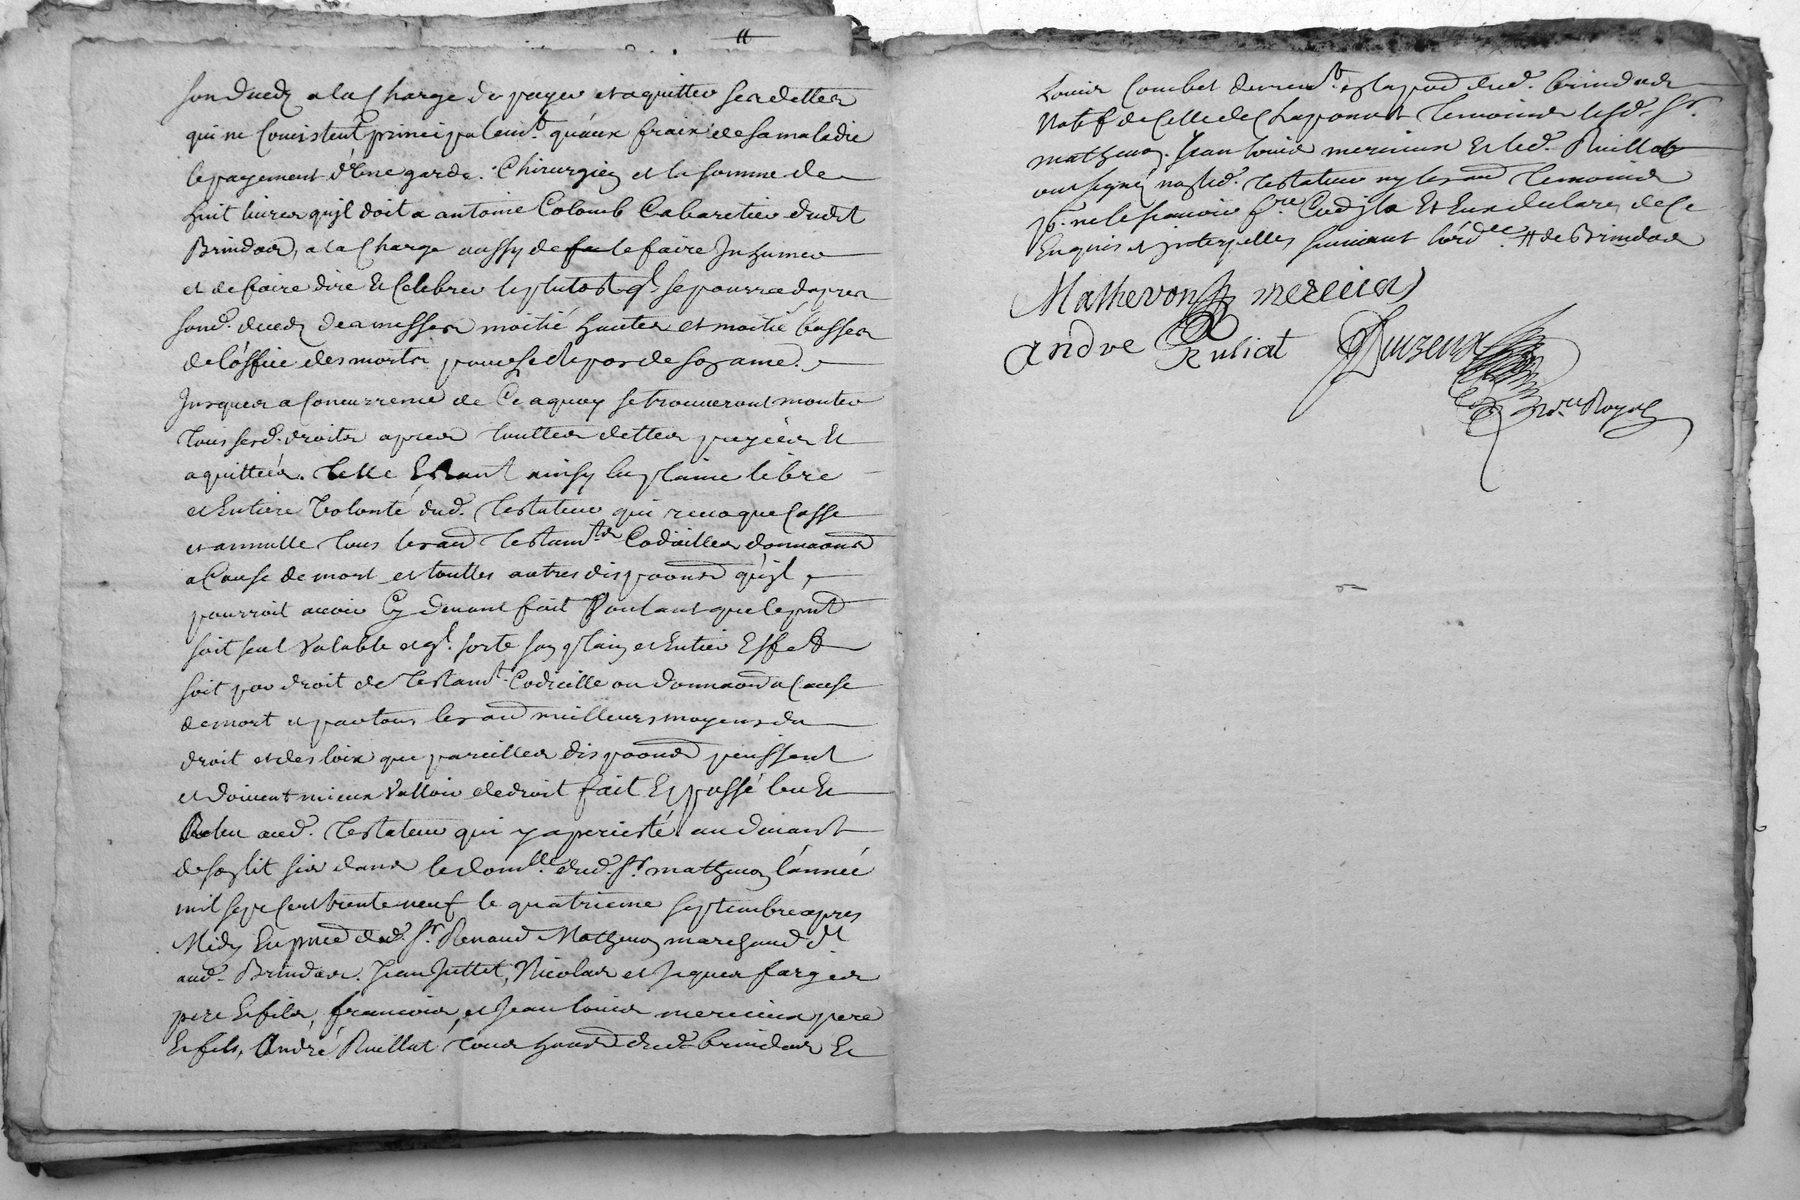 son deced a la Charge de payer et aquitter ses dettes
qui ne Consistent principalemt. qu'aux fraix de sa maladie
le payement d'Une garde. Chirurgien et la somme de
huit livres qu'il doit a antoine Colomb Cabaretier dudit
Brindas, a la Charge aussy de le faire Inhumer
et de faire dire et Celebrer le plutost ql. se pourra d'apres
sond. deced des messes moitié hautes et moitié basses
de l'office des morts pour le Repos de son ame.
Jusques a Concurrence de Ce a quoy se trouveront monter
tous sesd. droits apres touttes dettes payées et
aquittées. telle Estant ainsy la plaine libre
et Entiere Volonté dud. Testateur qui revoque Casse
et annulle tous les aus Testamts. Codicilles donnaons
a Cause de mort et touttes autres dispoons qu'il
pourroit avoir Cy devant fait Voulant que le pnt
soit seul Valable et ql. sorte son plain et Entier Effet
soit par droit de Testamt. Codicille ou donnaon a Cause
de mort et par tous les aus meilleurs moyens du
droit et des loix que pareilles dispoons peuvent
et doivent mieux Valloir de droit fait Et passé leu Et
Releu aud. Testateur qui y a persisté au devant
de son lit sis dans le domlle. dud. Sr. mathevon l'année
mil sept Cent trente neuf le quatrieme septembre apres
Midy En pnce dud. Sr. Renaud Mathevon marchand dt
aud. Brindas. Jean Juttet, Nicolas et Jaques fargies
pere Et fils, francois, et Jean louis mercieux pere
Et fils, André Ruillat tous habts dud. brindas Et
Louis Combet demeurt. en la par dud. brindas
Natif de Celle de Chaponost temoins lesd. Sr.
mathevon. Jean louis mercieux Et led. Ruillat
ont signé non led. testateur ny les aus temoins
Et Eux declare de Ce
Enquis et Interpelles suivant l'ordce. # de Brindas
Mathevon mercier
andre Ruliat Duzeux
nore. Royal